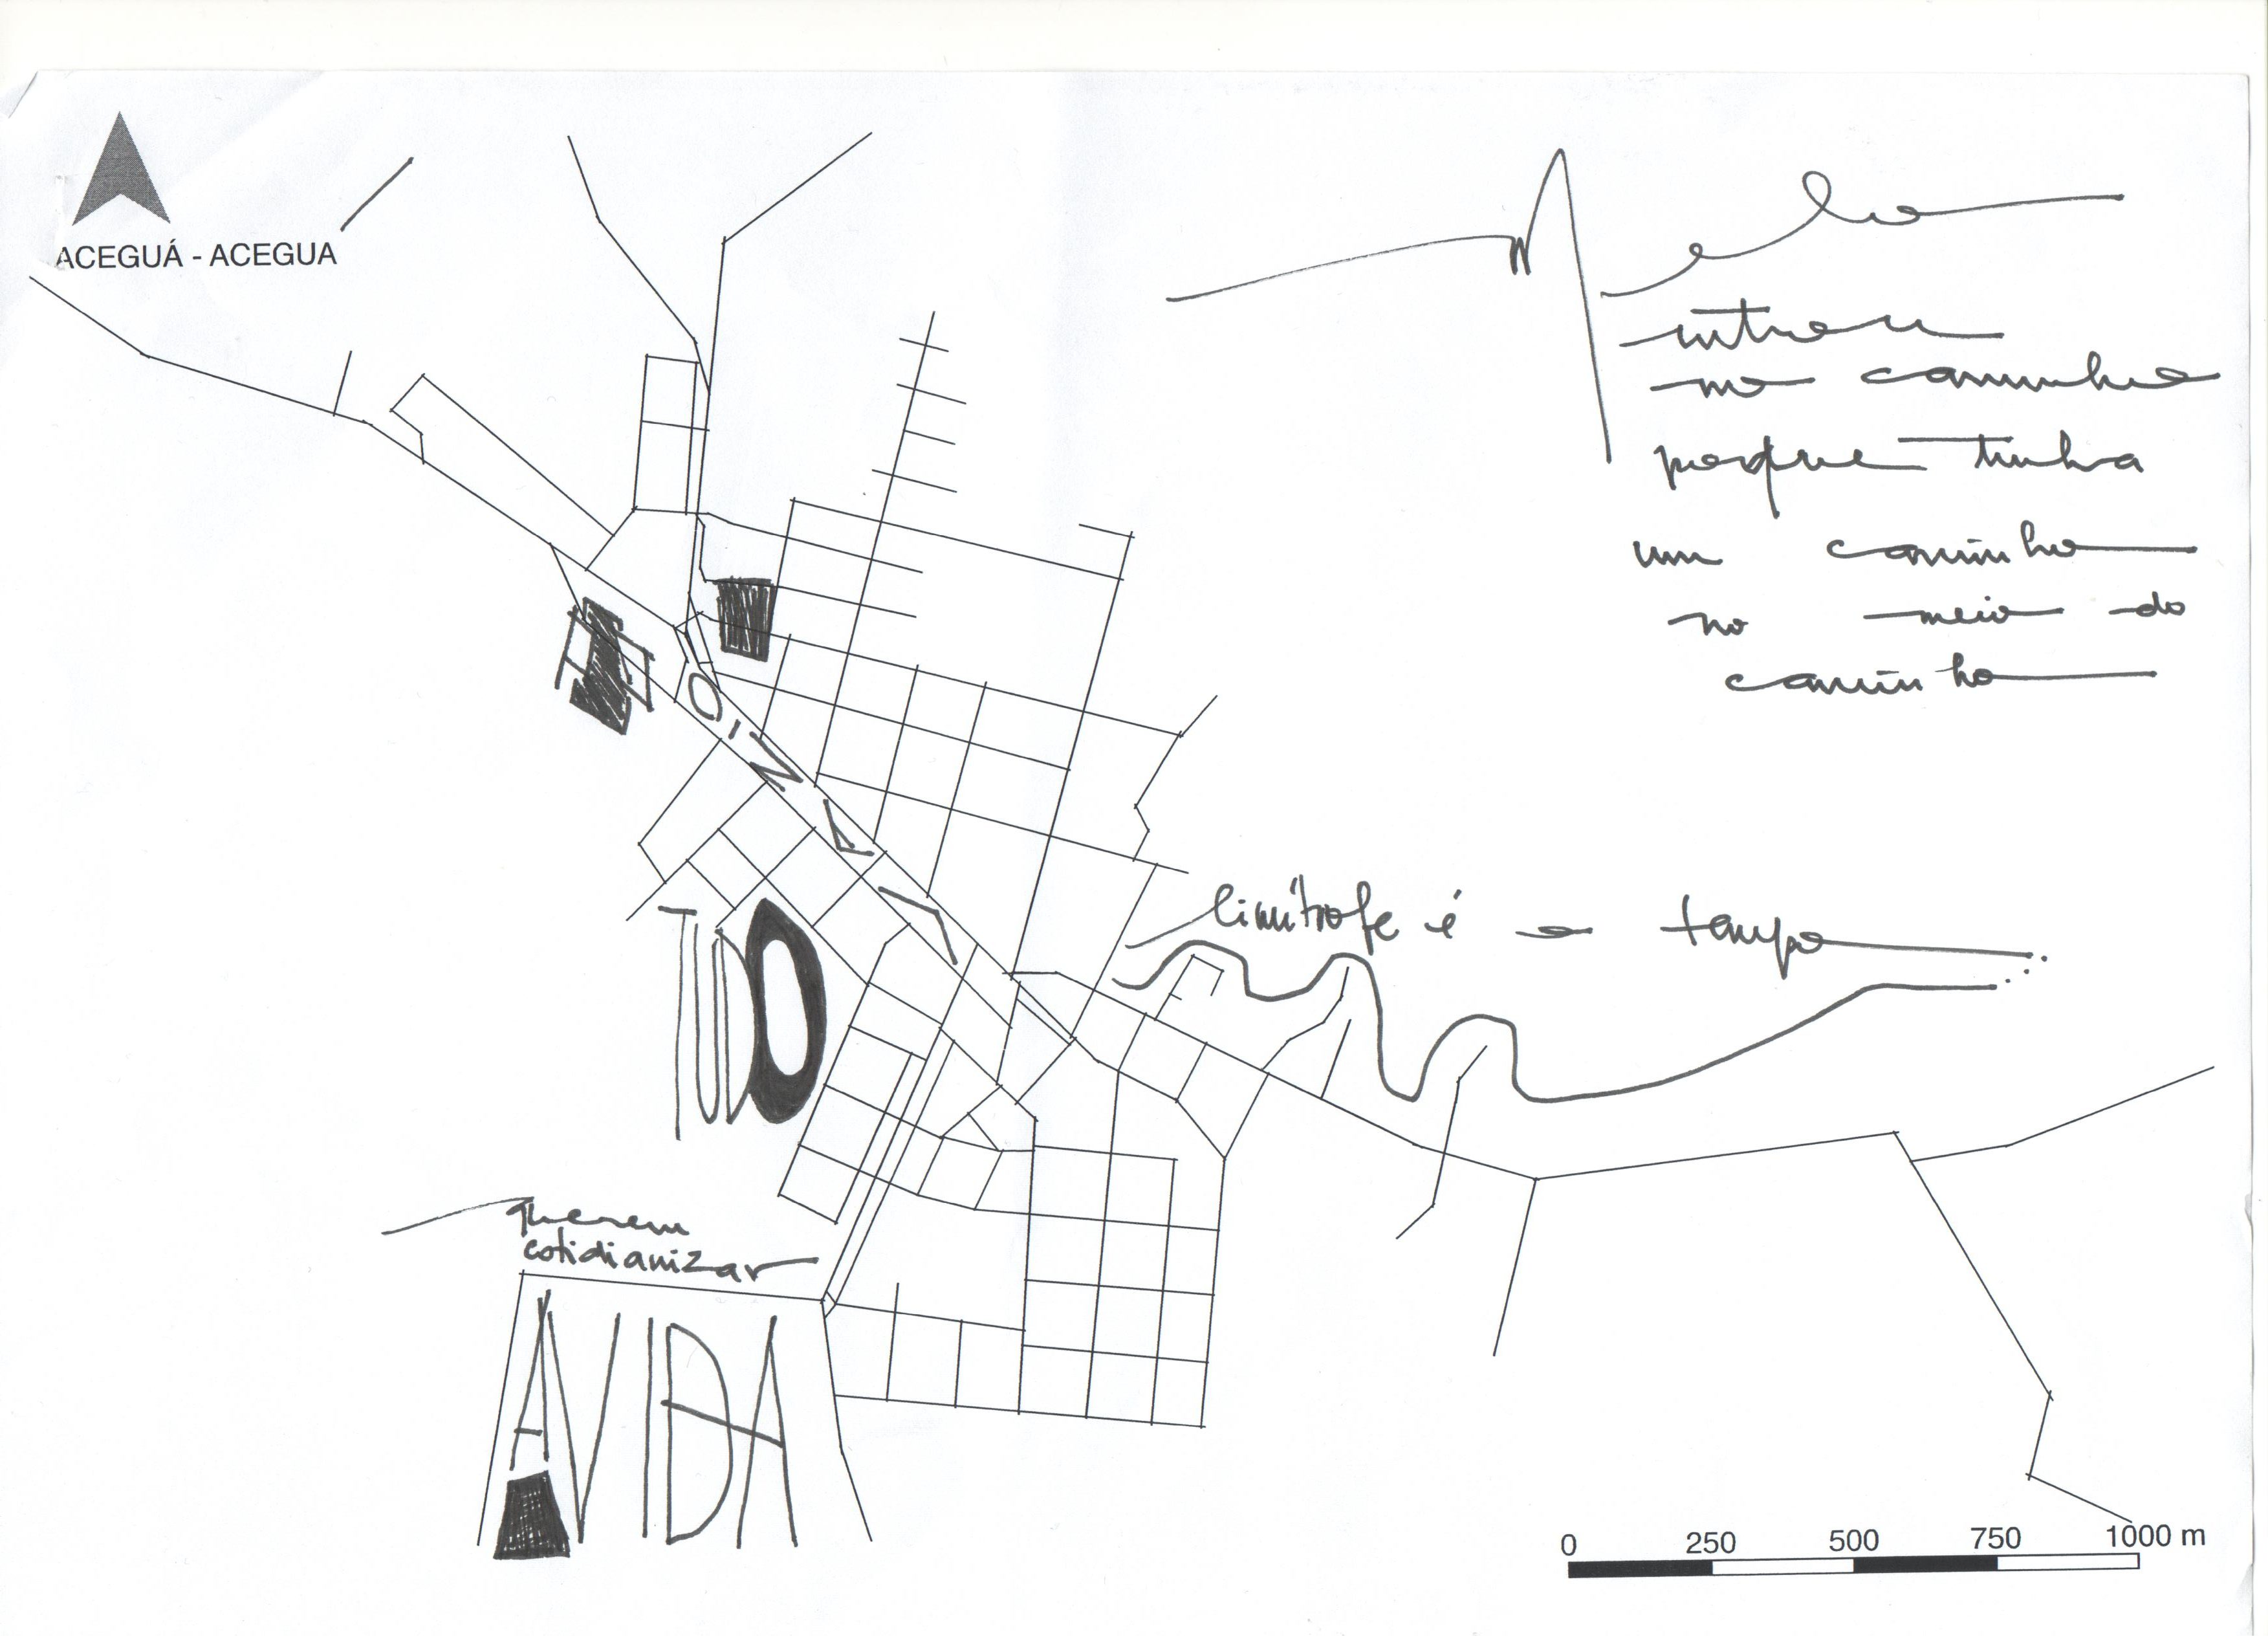 ACEGUÁ - ACEGUA
entrou
no caminho
porque tinha
um caminho
no meio do
caminho
limítrofe é o tempo
TUDO
querem
cotidianizar
A VIDA
0 250 500 750 1000 m